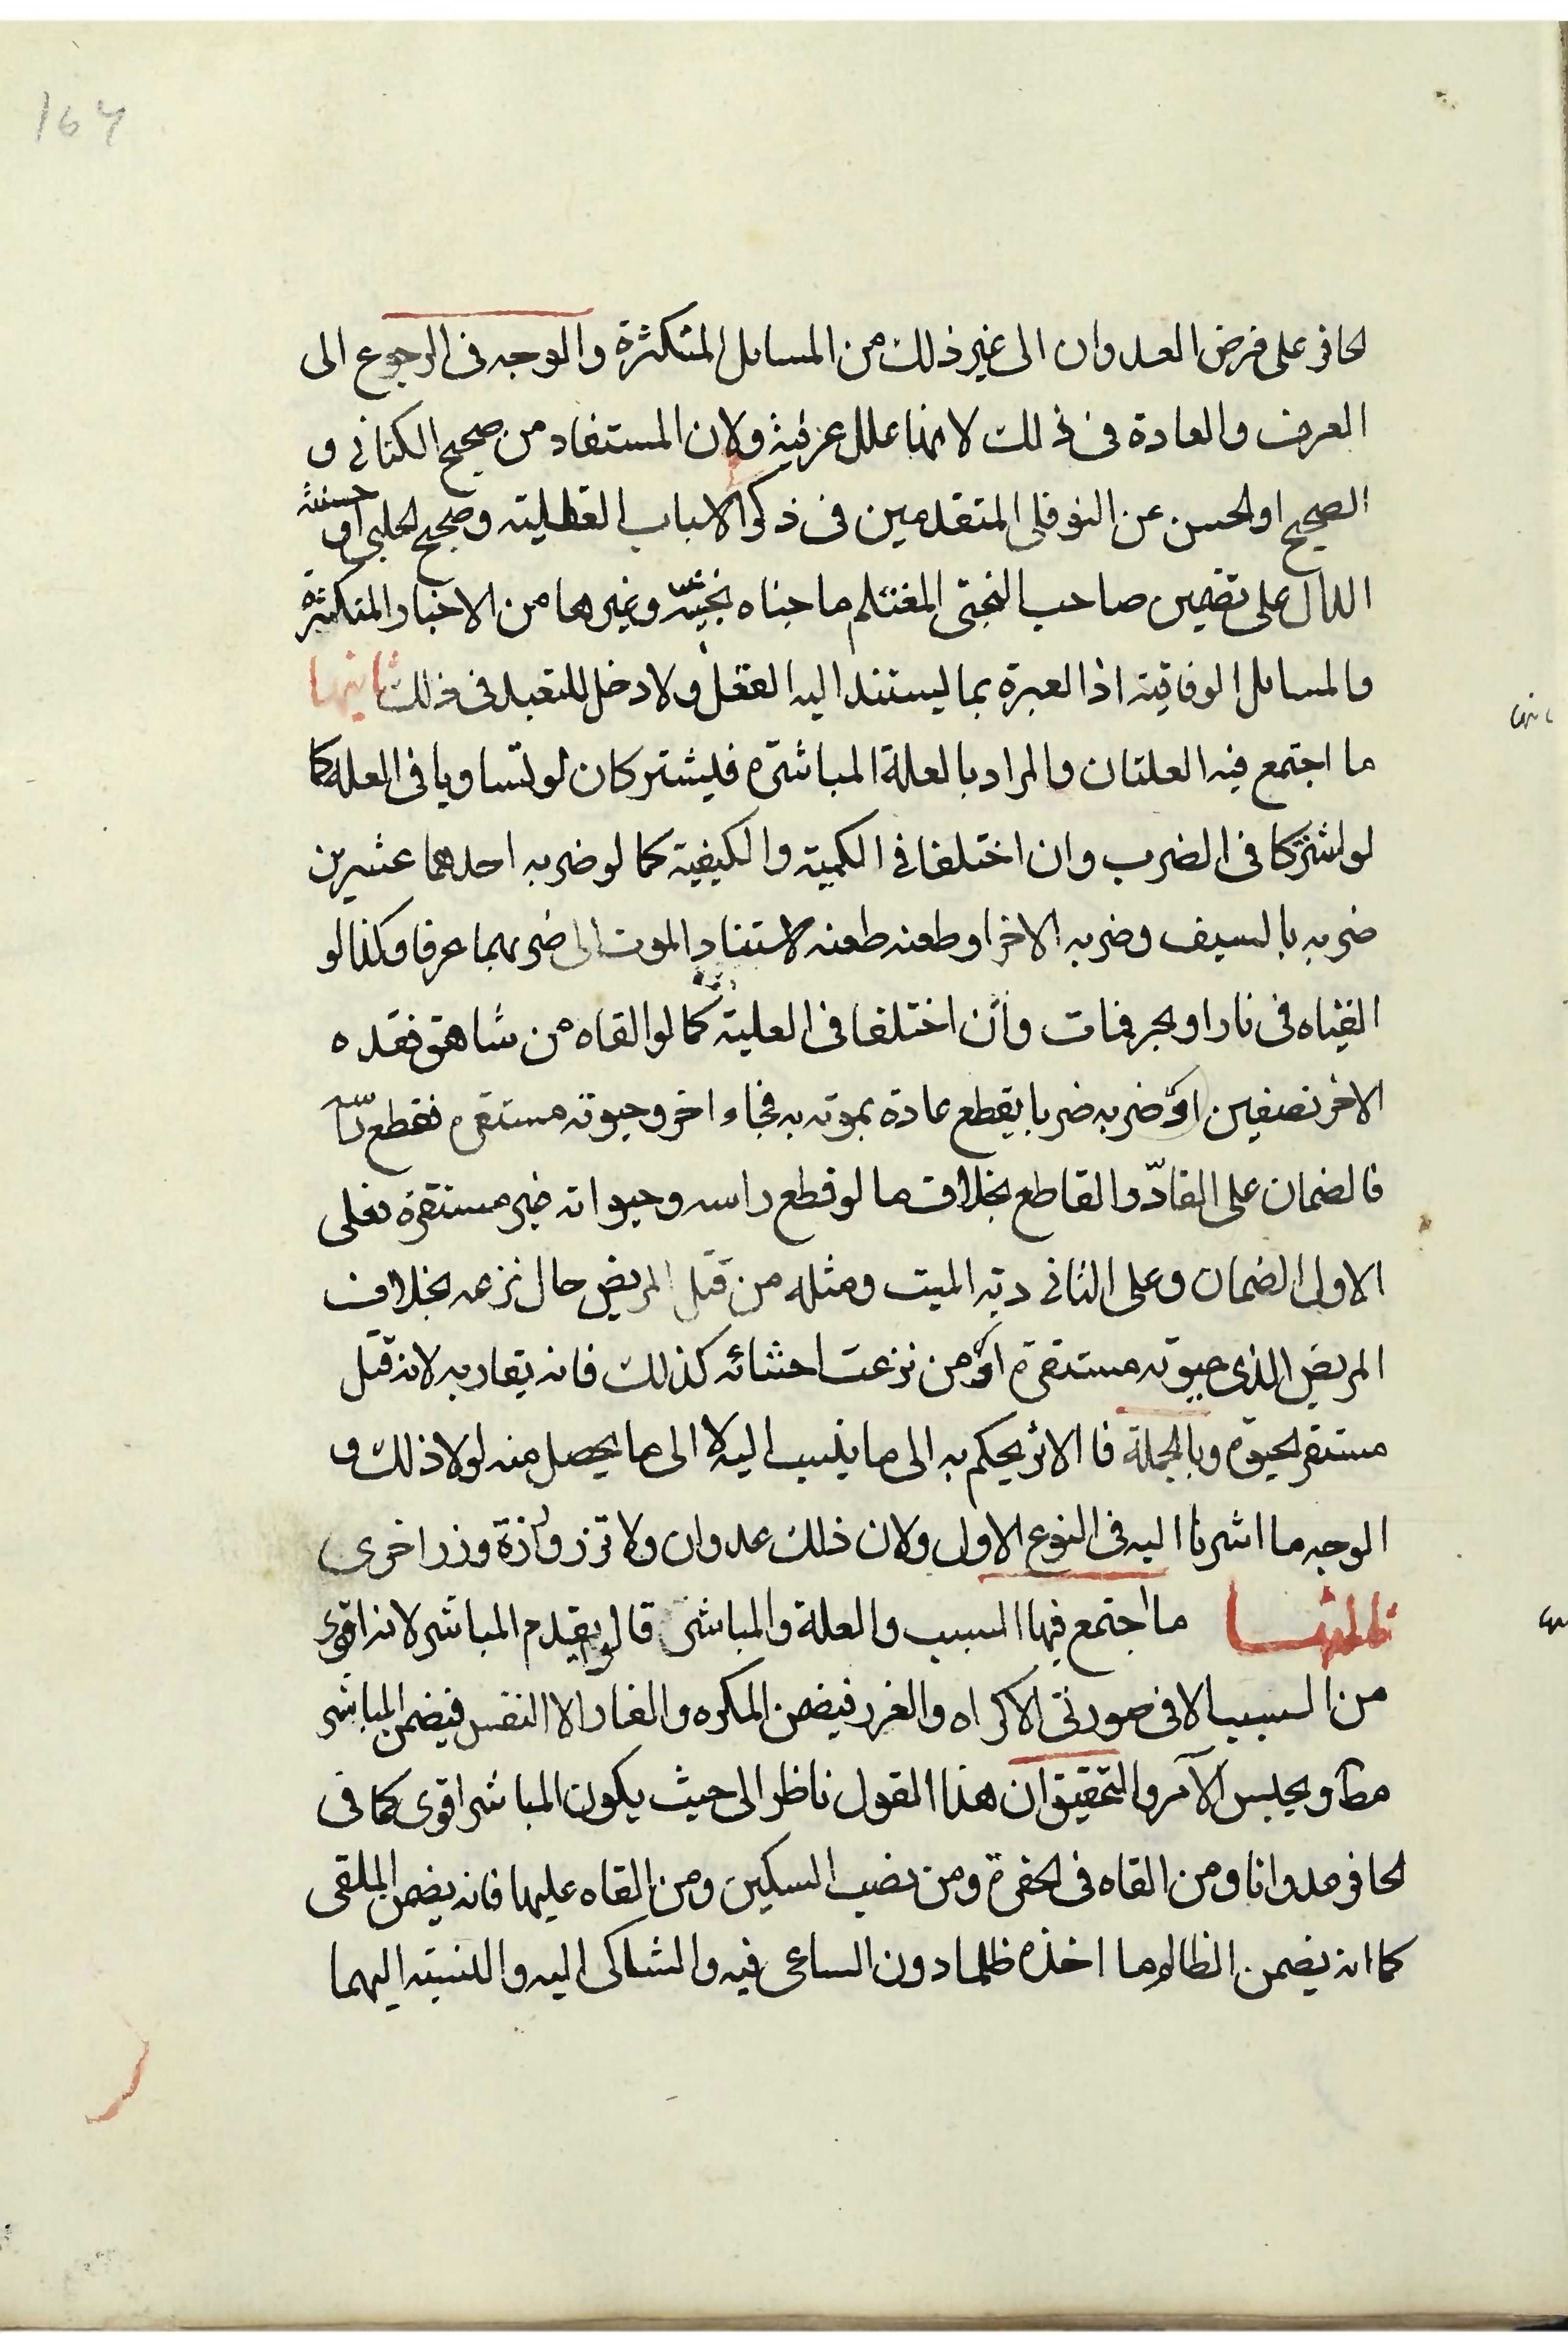 164
لحافر على فرض العدوان الى غير ذلك من المسائل المتكثرة والوجه فى الرجوع الى
العرف والعادة فى ذلك لانها علل عرفية ولان المستفاد من صحيح الكنانى و
الصحيح او الحسن عن النوفلى المتقدمين فى ذكر الاسباب القطليته وصحيح الحلبى او حسنته
الدال على تضمين صاحب البختى المغتلم ما جناه بختيه وغيرها من الاخبار المتكثرة
والمسائل الوفاقية اذ العبرة بما يستند اليه العقل ولا دخل للتعبد فى ذلك ثانيها
ما اجتمع فيه العلتان والمراد بالعلة المباشرة فيشتركان لو تساويا فى العله كما
لو اشتركا فى الضرب وان اختلفا فى الكمية والكيفية كما لو ضربه احدهما عشرين
ضربه بالسيف وضربه الاخر او طعنه طعنه لاستناد الموت الى ضربهما عرفا وكذا لو
القياه فى نار او بحر فمات وان اختلفا فى العلية كما لو القاه من شاهق فقده
الاخر نصفين او ضربه ضربا يقطع عادة بموته به فجاء اخر وحيوته مستقرة فقطع
فالضمان على القادّ والقاطع بخلاف ما لو قطع راسه وحيواته غير مستقرة فعلى
الاول الضمان وعلى الثانى دية الميت ومثله من قتل المريض حال نزعه بخلاف
المريض الذى حيوته مستقرة او من نزعت احشائه كذلك فانه يقاد به لانه قتل
مستقر الحيوة وبالجملة فالاثر يحكم به الى ما ينسب اليه لا الى ما يحصل منه لولا ذلك و
الوجه ما اشرنا اليه فى النوع الاول ولان ذلك عدوان ولا تزر وازرة وزر اخرى
ثالثها ما اجتمع فيها السبب والعلة والمباشر قالوا يقدم المباشر لانه اقوى
من السبب الا فى صورتى الاكراه والغرر فيضمن المكره والغار الا النفس فيضمن المباشر
مطا ويحبس الآمر والتحقيق ان هذا القول ناظر الى حيث يكون المباشر اقوى كما فى
لحافر عدوانا ومن القاه فى الحفرة ومن نصب السكين ومن القاه عليها فانه يضمن الملقى
كما انه يضمن الظالم ما اخذه ظلما دون الساعى فيه والشاكى اليه والنسبته اليهما